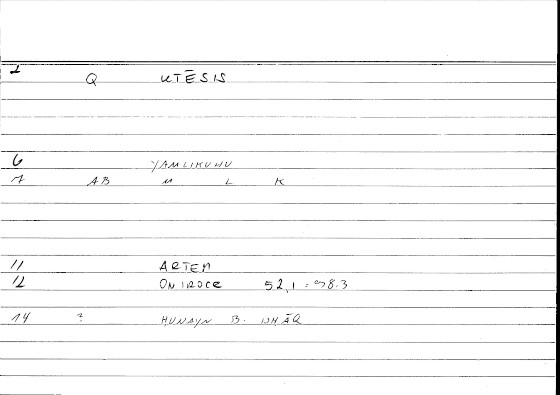 1
Q KTĒSIS
6 YAMLIKUHU
7 AB M L K
11 ARTEM
12 ONIROCR 52,1 = 98.3
14 ? ḤUNAYN B. ISḤĀQ